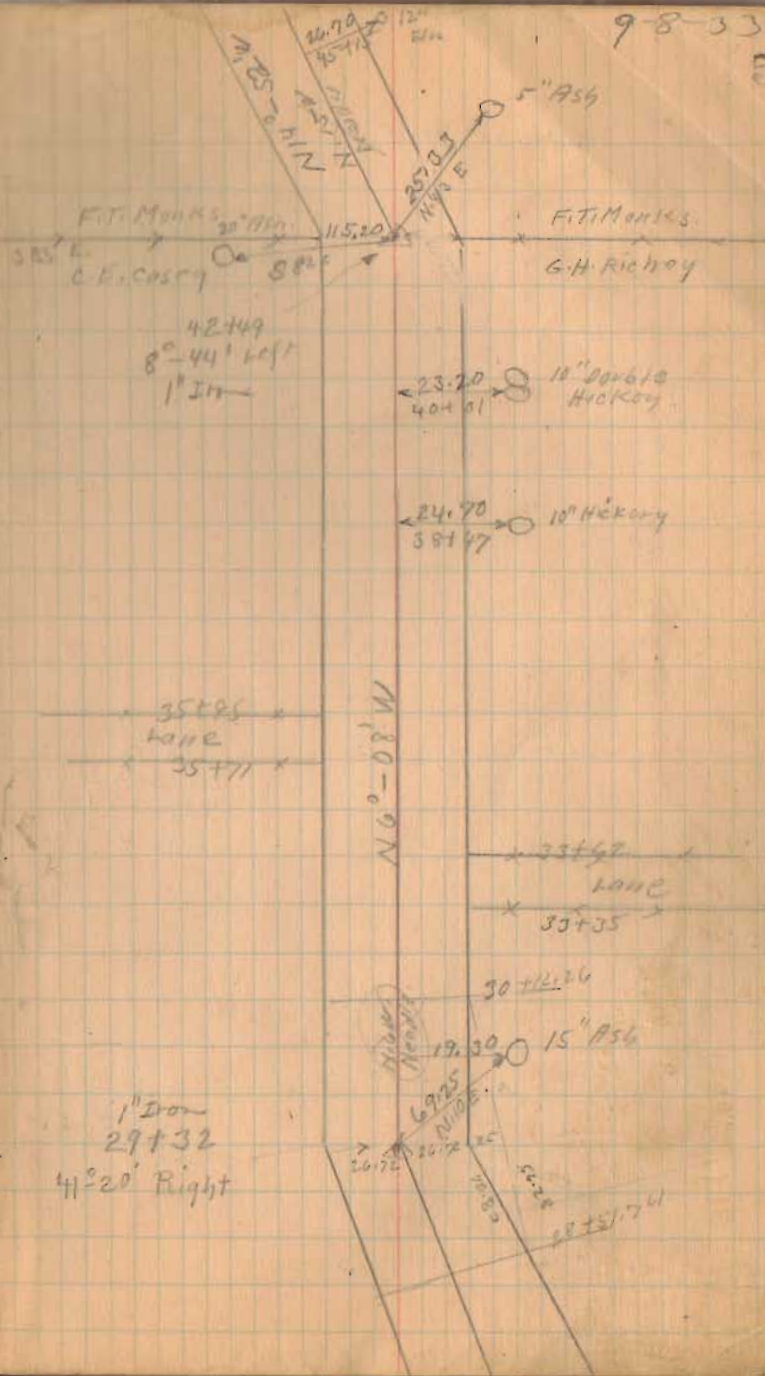 9-8-33
26.70
45+15
12"
Elm
5" Ash
N14°-52'W
25.33
N43E
F.T. Monks
20" Ash
115.20
F.T. Monks
S85°E
C.E. Casey
882
G.H. Richey
42+49
8°-44' Left
1" Iron
23.20
40+01
10" Double
Hickory
24.70
38+47
10" Hickory
35+95
Lane
35+71
N6°-08'W
33+62
Lane
33+35
30+12.26
19.30
15" Ash
69.25
N10E
1" Iron
29+32
41°20' Right
26.72
26.72
25
68.26
56.28
28+51.74